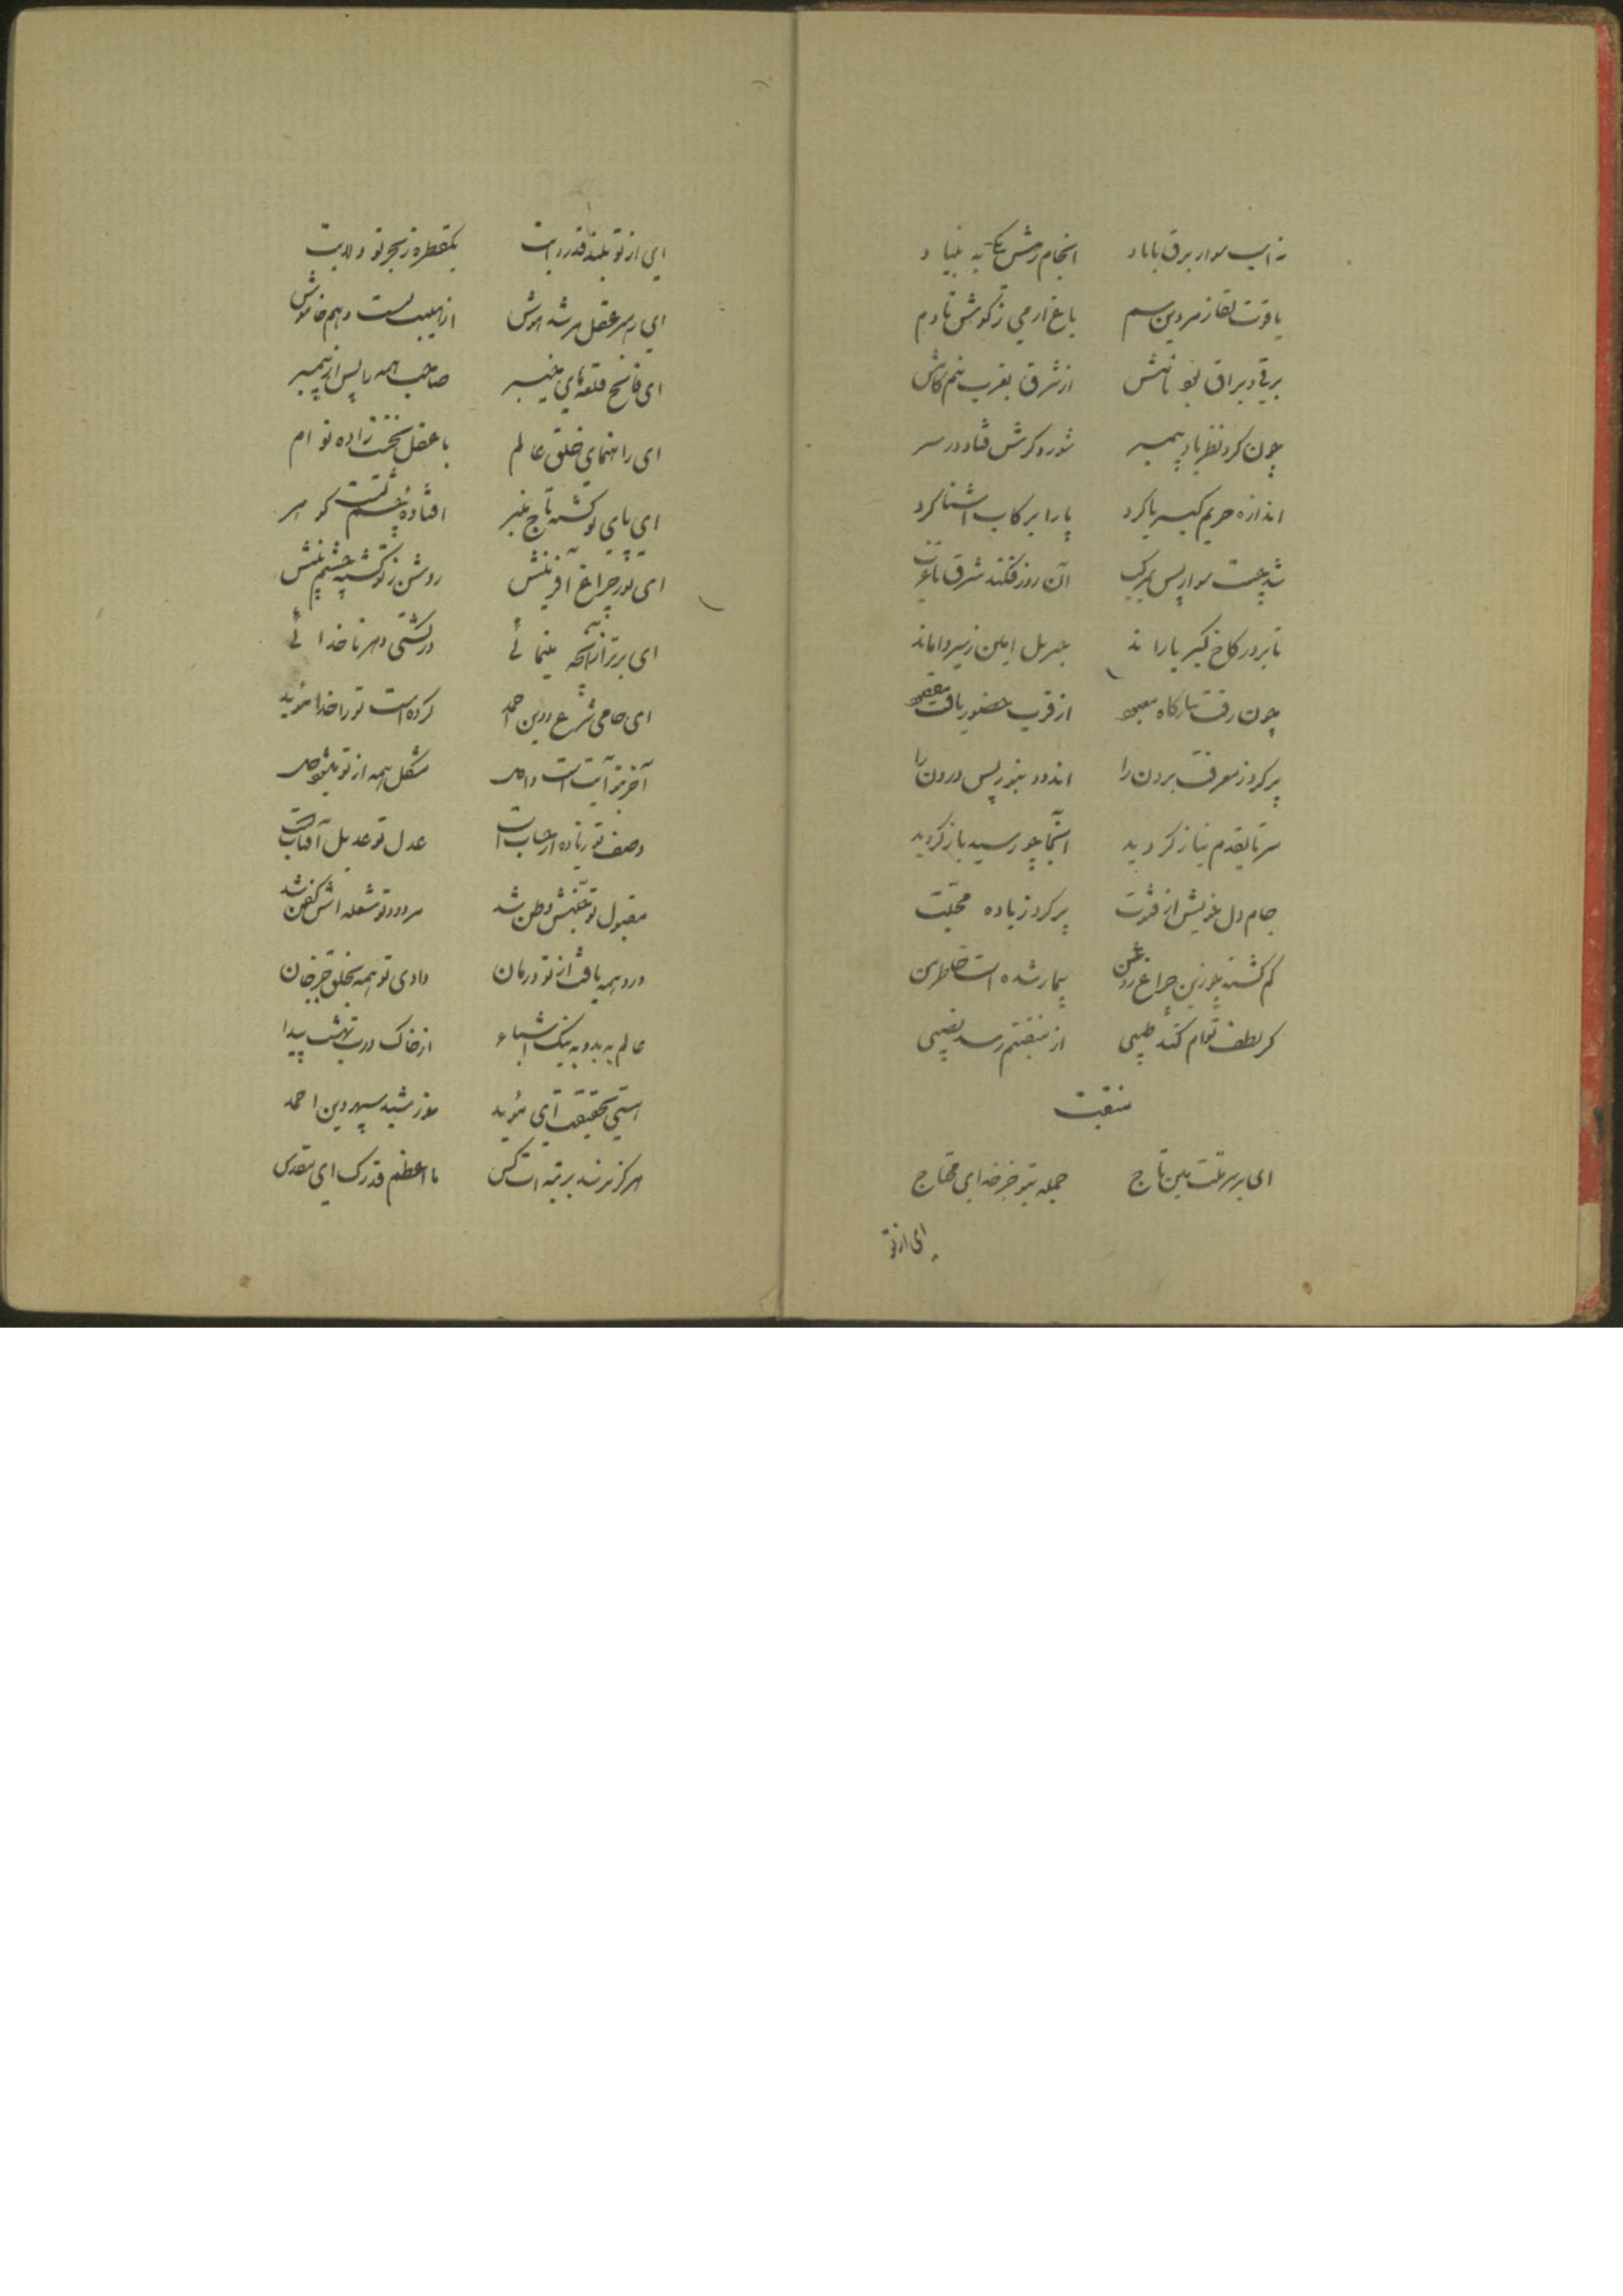 نه اسب سوار برق با باد انجام رمش نکته بنیاد
یاقوت لقا زمردین سم باغ ارمی ز گوش تا دم
برقی و براق بود نامش از شرق بغرب نیم گامش
چون کرد نظر باو پیمبر شور و کرشش فتاد در سر
اندازه حریم کبریا کرد پا را برکاب آشنا کرد
شد چست سوار پس بمرکب آن روز فکند شرق تا غرب
تا بر در کاخ کبریا راند جبریل امین ز سیر واماند
چون رفت ببارگاه معبود از قرب حضور یافت مقصود
پر کرد ز معرفت برون را اندود بنور پس درون را
سر تا بقدم نیاز گردید آنجا چو رسید باز گردید
جام دل خویش از فتوت پر کرد ز باده محبت
گم گشته چو زین چراغ روغن بیمار شده است خاطر من
گر لطف توام کند طبیبی از منقبتم رسد نصیبی
منقبت
ای بر سر ملت مبین تاج جمله بتو جز خدای محتاج
ای از تو
ای از تو بلند قدر رایت یکقطره ز بحر تو ولایت
ای رهبر عقل و مرشد هوش از هیبت تست وهم خاموش
ای فاتح قلعه‌های خیبر صاحب همه را پس از پیمبر
ای راهنمای خلق عالم با عقل نخست زاده توام
ای پای تو گشته تاج منبر افتاده ز چشم قیمت گوهر
ای نور چراغ آفرینش روشن ز تو گشته چشم بینش
ای برتر از آنچه مینمائی در کشتی دهر ناخدائی
ای حامی شرع و دین احمد کرده است تو را خدا مؤید
آخر بتو آیت است واصل مشکل همه از تو میشود حل
وصف تو زیاده از حساب است عدل تو عدیل آفتاب است
مقبول تو جنتش وطن شد مردود تو شعله اش کفن شد
درد همه یافت از تو درمان دادی تو همه بخلق جز جان
عالم ز بد و ز نیک اشیاء از خاک درت بهشت پیدا
هستی بحقیقت ای مؤید خورشید سپهر دین احمد
هرگز نرسد برتبه ات کس ما اعظم قدرک ای مقدس